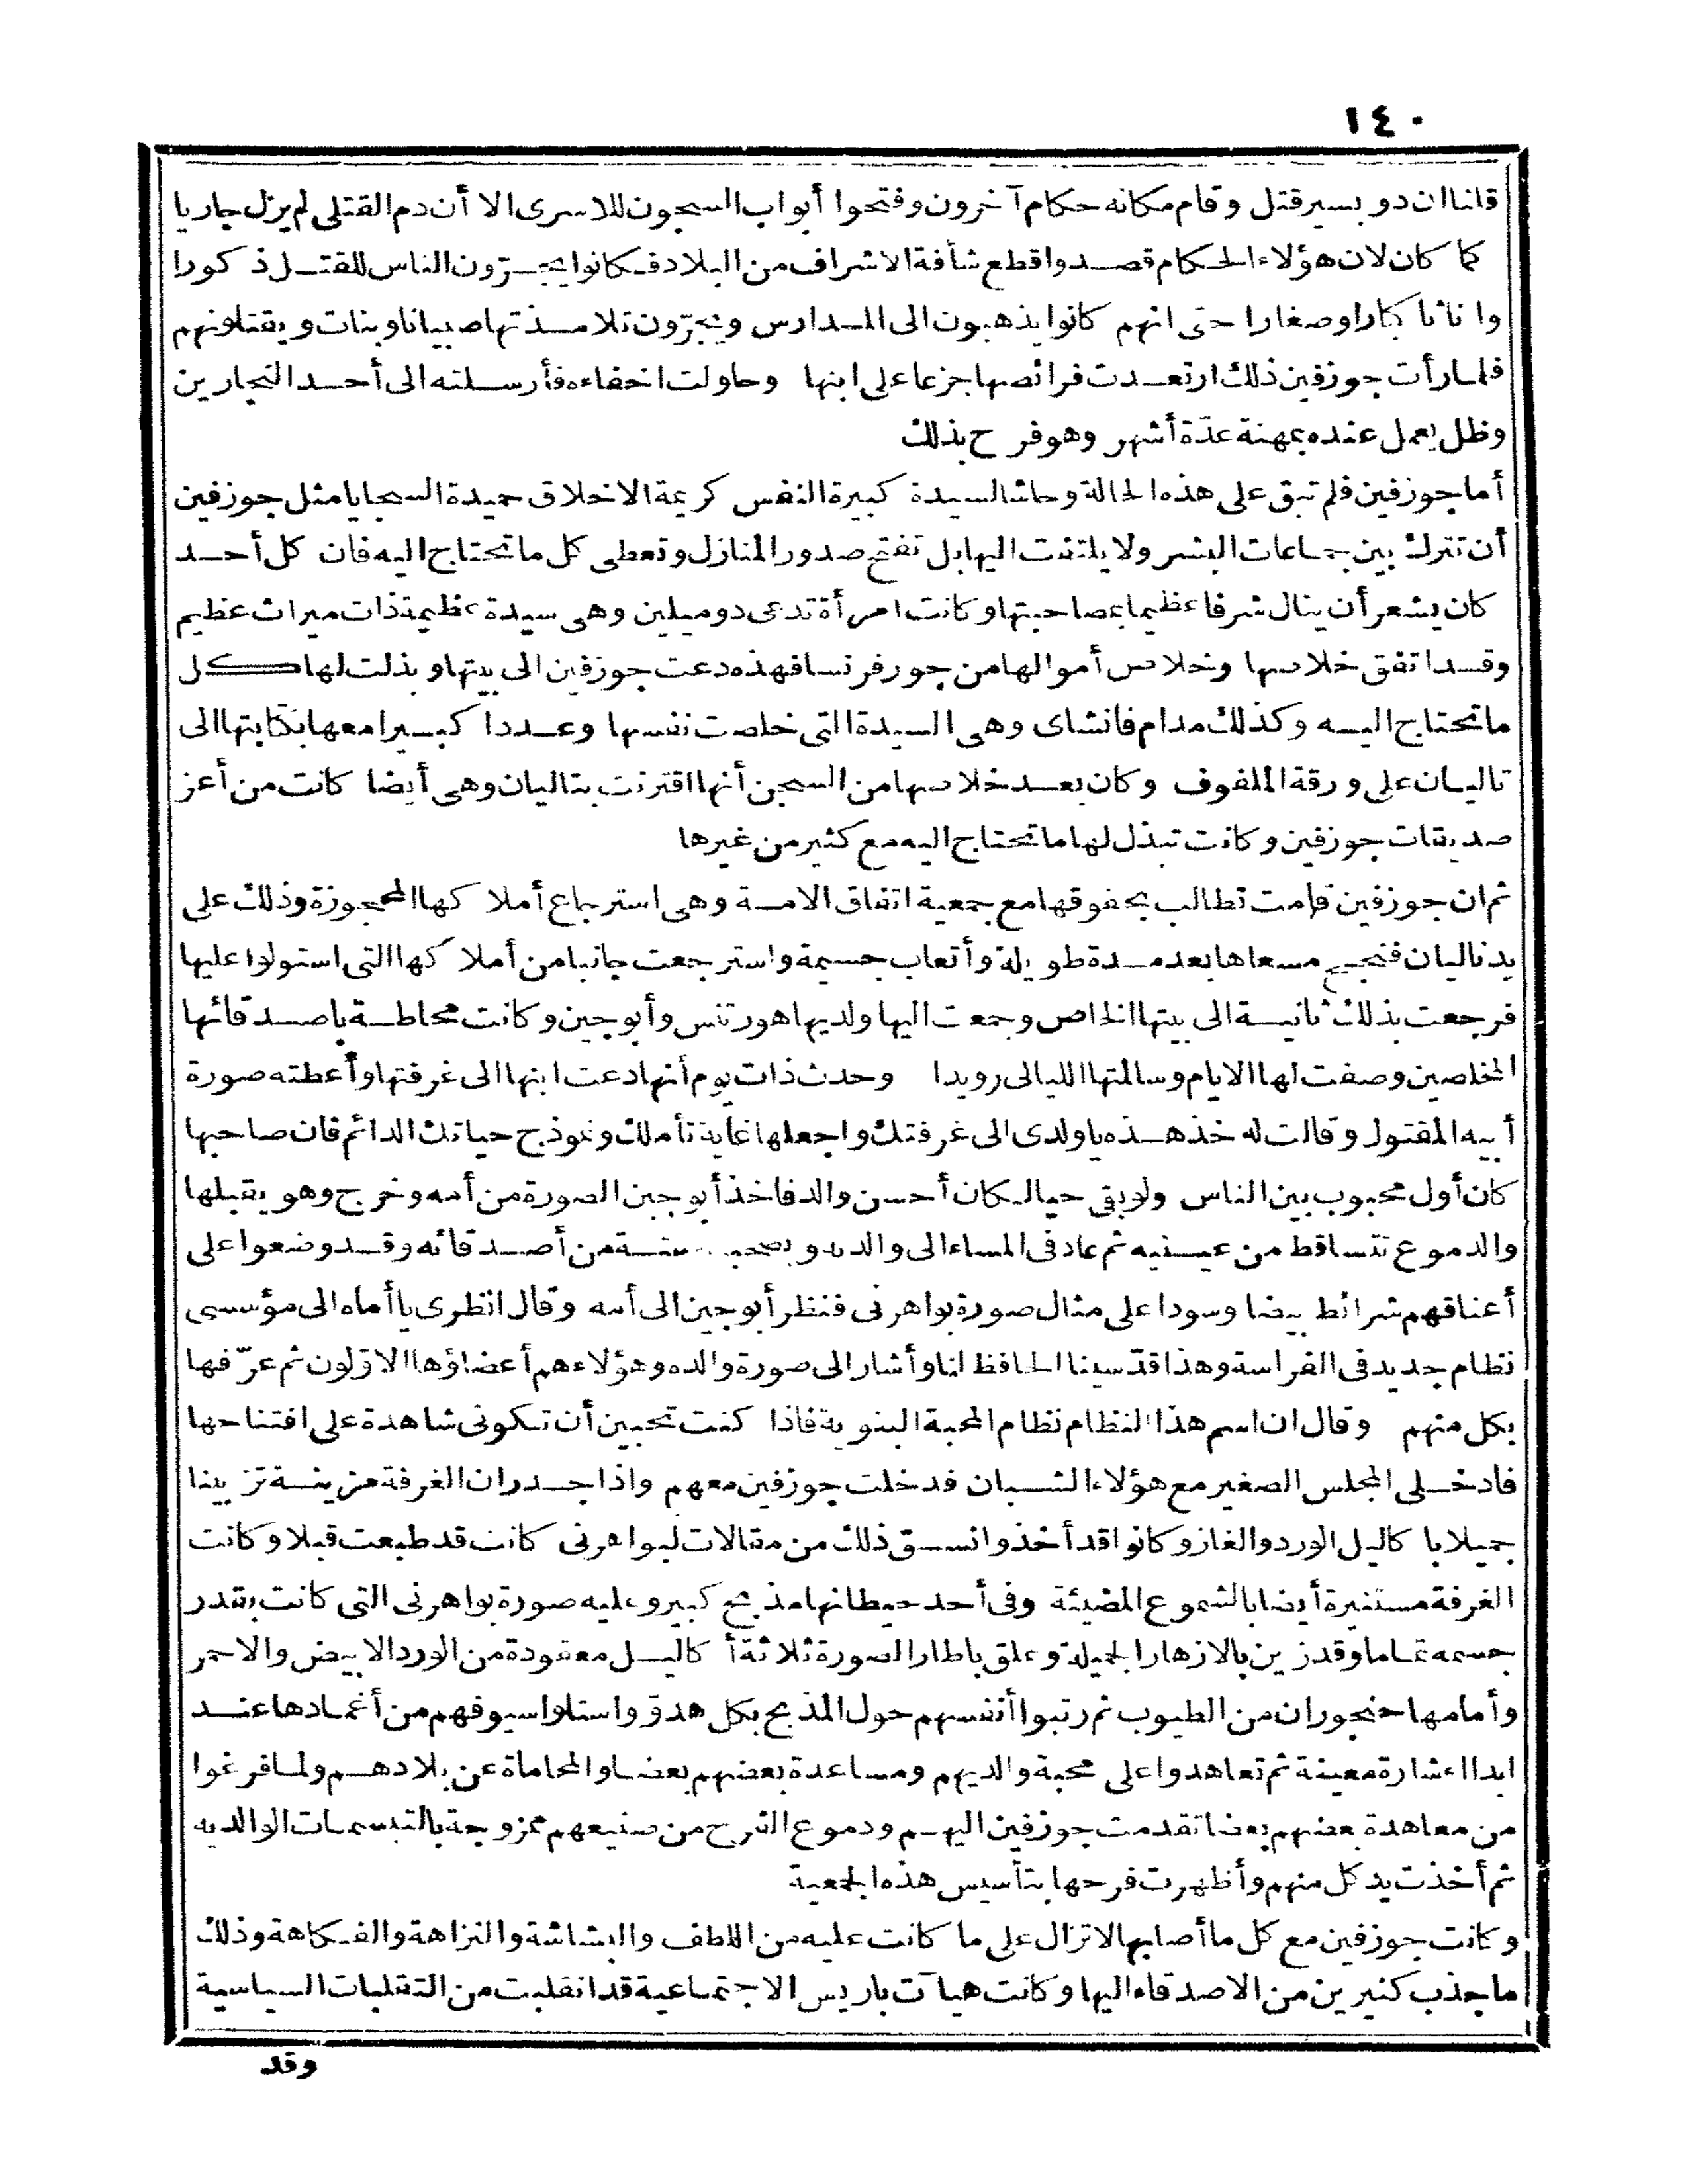 ١٤٠
قلنا ان دو بسير قتل وقام مكانه حكام آخرون وفتحوا أبواب السجون للاسرى الا أن دم القتلى لم يزل جاريا
كما كان لان هؤلاء الحكام قصدوا قطع شأفة الاشراف من البلاد فكانوا يجرّون الناس للقتل ذكورا
واناثا كبارا وصغارا حتى انهم كانوا يذهبون الى المدارس ويجرّون تلامذتها صبيانا وبنات ويقتلونهم
فلما رأت جوزفين ذلك ارتعدت فرائصها جزعا على ابنها وحاولت اخفاءه فأرسلته الى أحد النجارين
وظل يعمل عنده بمهنة عدّة أشهر وهو فرح بذلك
أما جوزفين فلم تبق على هذه الحالة وحاشا لسيدة كبيرة النفس كريمة الاخلاق حميدة السجايا مثل جوزفين
أن تترك بين جماعات البشر ولا يلتفت اليها بل تفتح صدور المنازل وتعطى كل ما تحتاج اليه فان كل أحد
كان يشعر أن ينال شرفا عظيما بمصاحبتها وكانت امرأة تدعى دوميلين وهى سيدة عظيمة ذات ميراث عظيم
وقد اتفق خلاصها وخلاص أموالها من جور فرنسا فهذه دعت جوزفين الى بيتها وبذلت لها كل
ما تحتاج اليه وكذلك مدام فانشاى وهى السيدة التى خلصت نفسها وعددا كبيرا معها بكتابتها الى
تاليان على ورقة الملفوف وكان بعد خلاصها من السجن أنها اقترنت بتاليان وهى أيضا كانت من أعز
صديقات جوزفين وكانت تبذل لها ما تحتاج اليه مع كثير من غيرها
ثم ان جوزفين قامت تطالب بحقوقها مع جمعية اتفاق الامة وهى استرجاع أملاكها المحجوزة وذلك على
يد تاليان فنجح مسعاها بعد مدة طويلة وأتعاب جسيمة واسترجعت جانبا من أملاكها التى استولوا عليها
فرجعت بذلك ثانية الى بيتها الخاص وجمعت اليها ولديها هورتنس وأيوجين وكانت محاطة باصدقائها
المخلصين وصفت لها الايام وسالمتها الليالى رويدا وحدث ذات يوم أنها دعت ابنها الى غرفتها وأعطته صورة
أبيه المقتول وقالت له خذ هذه يا ولدى الى غرفتك واجعلها غاية تأملك ونموذج حياتك الدائم فان صاحبها
كان أول محبوب بين الناس ولو بقى حيا لكان أحسن والد فاخذ أيوجين الصورة من أمه وخرج وهو يقبلها
والدموع تتساقط من عينيه ثم عاد فى المساء الى والدته وبصحبته ستة من أصدقائه وقد وضعوا على
أعناقهم شرائط بيضا وسودا على مثال صورة بواهرنى فنظر أيوجين الى أمه وقال انظرى يا أماه الى مؤسسى
نظام جديد فى الفراسة وهذا قدّسينا الحافظ لنا وأشار الى صورة والده وهؤلاء هم أعضاؤها الاوّلون ثم عرّفها
بكل منهم وقال ان اسم هذا النظام نظام المحبة البنوية فاذا كنت تحبين أن تكونى شاهدة على افتتاحها
فادخلى المجلس الصغير مع هؤلاء الشبان فدخلت جوزفين معهم واذا جدران الغرفة مزينة تزيينا
جميلا باكاليل الورد والغاز وكانوا قد أخذوا نسق ذلك من مقالات لبواهرنى كانت قد طبعت قبلا وكانت
الغرفة مستنيرة أيضا بالشموع المضيئة وفى أحد حيطانها مذبح كبير وعليه صورة بواهرنى التى كانت بقدر
جسمه تماما وقد زين بالازهار الجميلة وعلق باطار الصورة ثلاثة أكاليل معقودة من الورد الابيض والاحمر
وأمامها حنجوران من الطيوب ثم رتبوا أنفسهم حول المذبح بكل هدوّ واستلوا سيوفهم من أغمادها عند
ابداء اشارة معينة ثم تعاهدوا على محبة والديهم ومساعدة بعضهم بعضا والمحاماة عن بلادهم ولما فرغوا
من معاهدة بعضهم بعضا تقدمت جوزفين اليهم ودموع الفرح من صنيعهم ممزوجة بالتبسمات الوالدية
ثم أخذت يد كل منهم وأظهرت فرحها بتأسيس هذه الجمعية
وكانت جوزفين مع كل ما أصابها لا تزال على ما كانت عليه من اللطف والبشاشة والنزاهة والفكاهة وذلك
ما جذب كثيرين من الاصدقاء اليها وكانت هيآت باريس الاجتماعية قد انقلبت من التقلبات السياسية
وقد